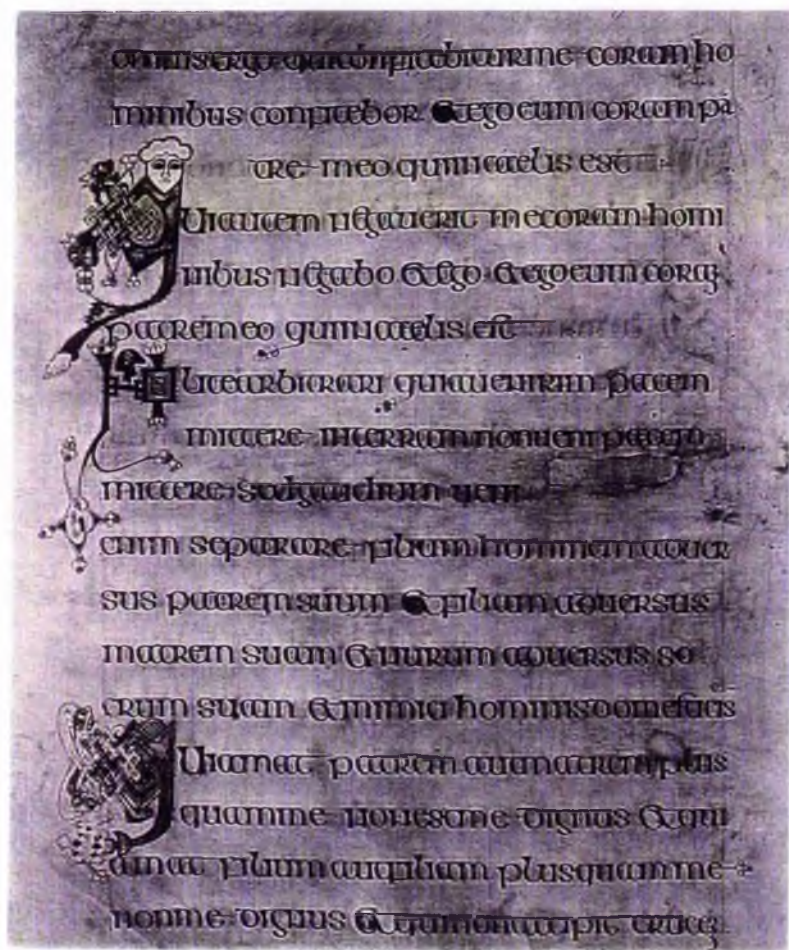 omnis ergo qui confitebitur me coram ho
minibus confitebor & ego eum coram pa
tre meo qui in caelis est
Qui autem negaverit me coram homi
nibus negabo & ego & ego eum cora
patre meo qui in caelis est
Nolite arbitrari quia venerim pacem
mittere in terram non veni pacem
mittere sed gaudium veni
enim separare filium hominem adver
sus patrem suum & filiam adversus
matrem suam & nurum adversus so
crum suam & inimici hominis domestici eis
Qui amat patrem aut matrem plus
quam me non est me dignus & qui
amat filium aut filiam plus quam me
non me dignus & qui non accipit cruce